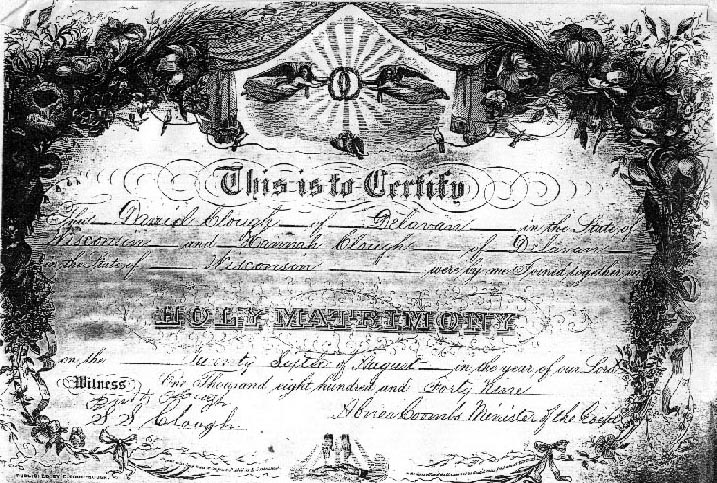 This is to Certify
That David Clough of Delavan in the State of
Wisconsin and Hannah Clough of Delavan
in the State of Wisconsin were by me Joined together in
HOLY MATRIMONY
on the Twenty of August in the year of our Lord
Witness One Thousand eight hundred and Forty Nine
Clough Abner Coombs Minister of the
S S Clough
PUBLISHED BY